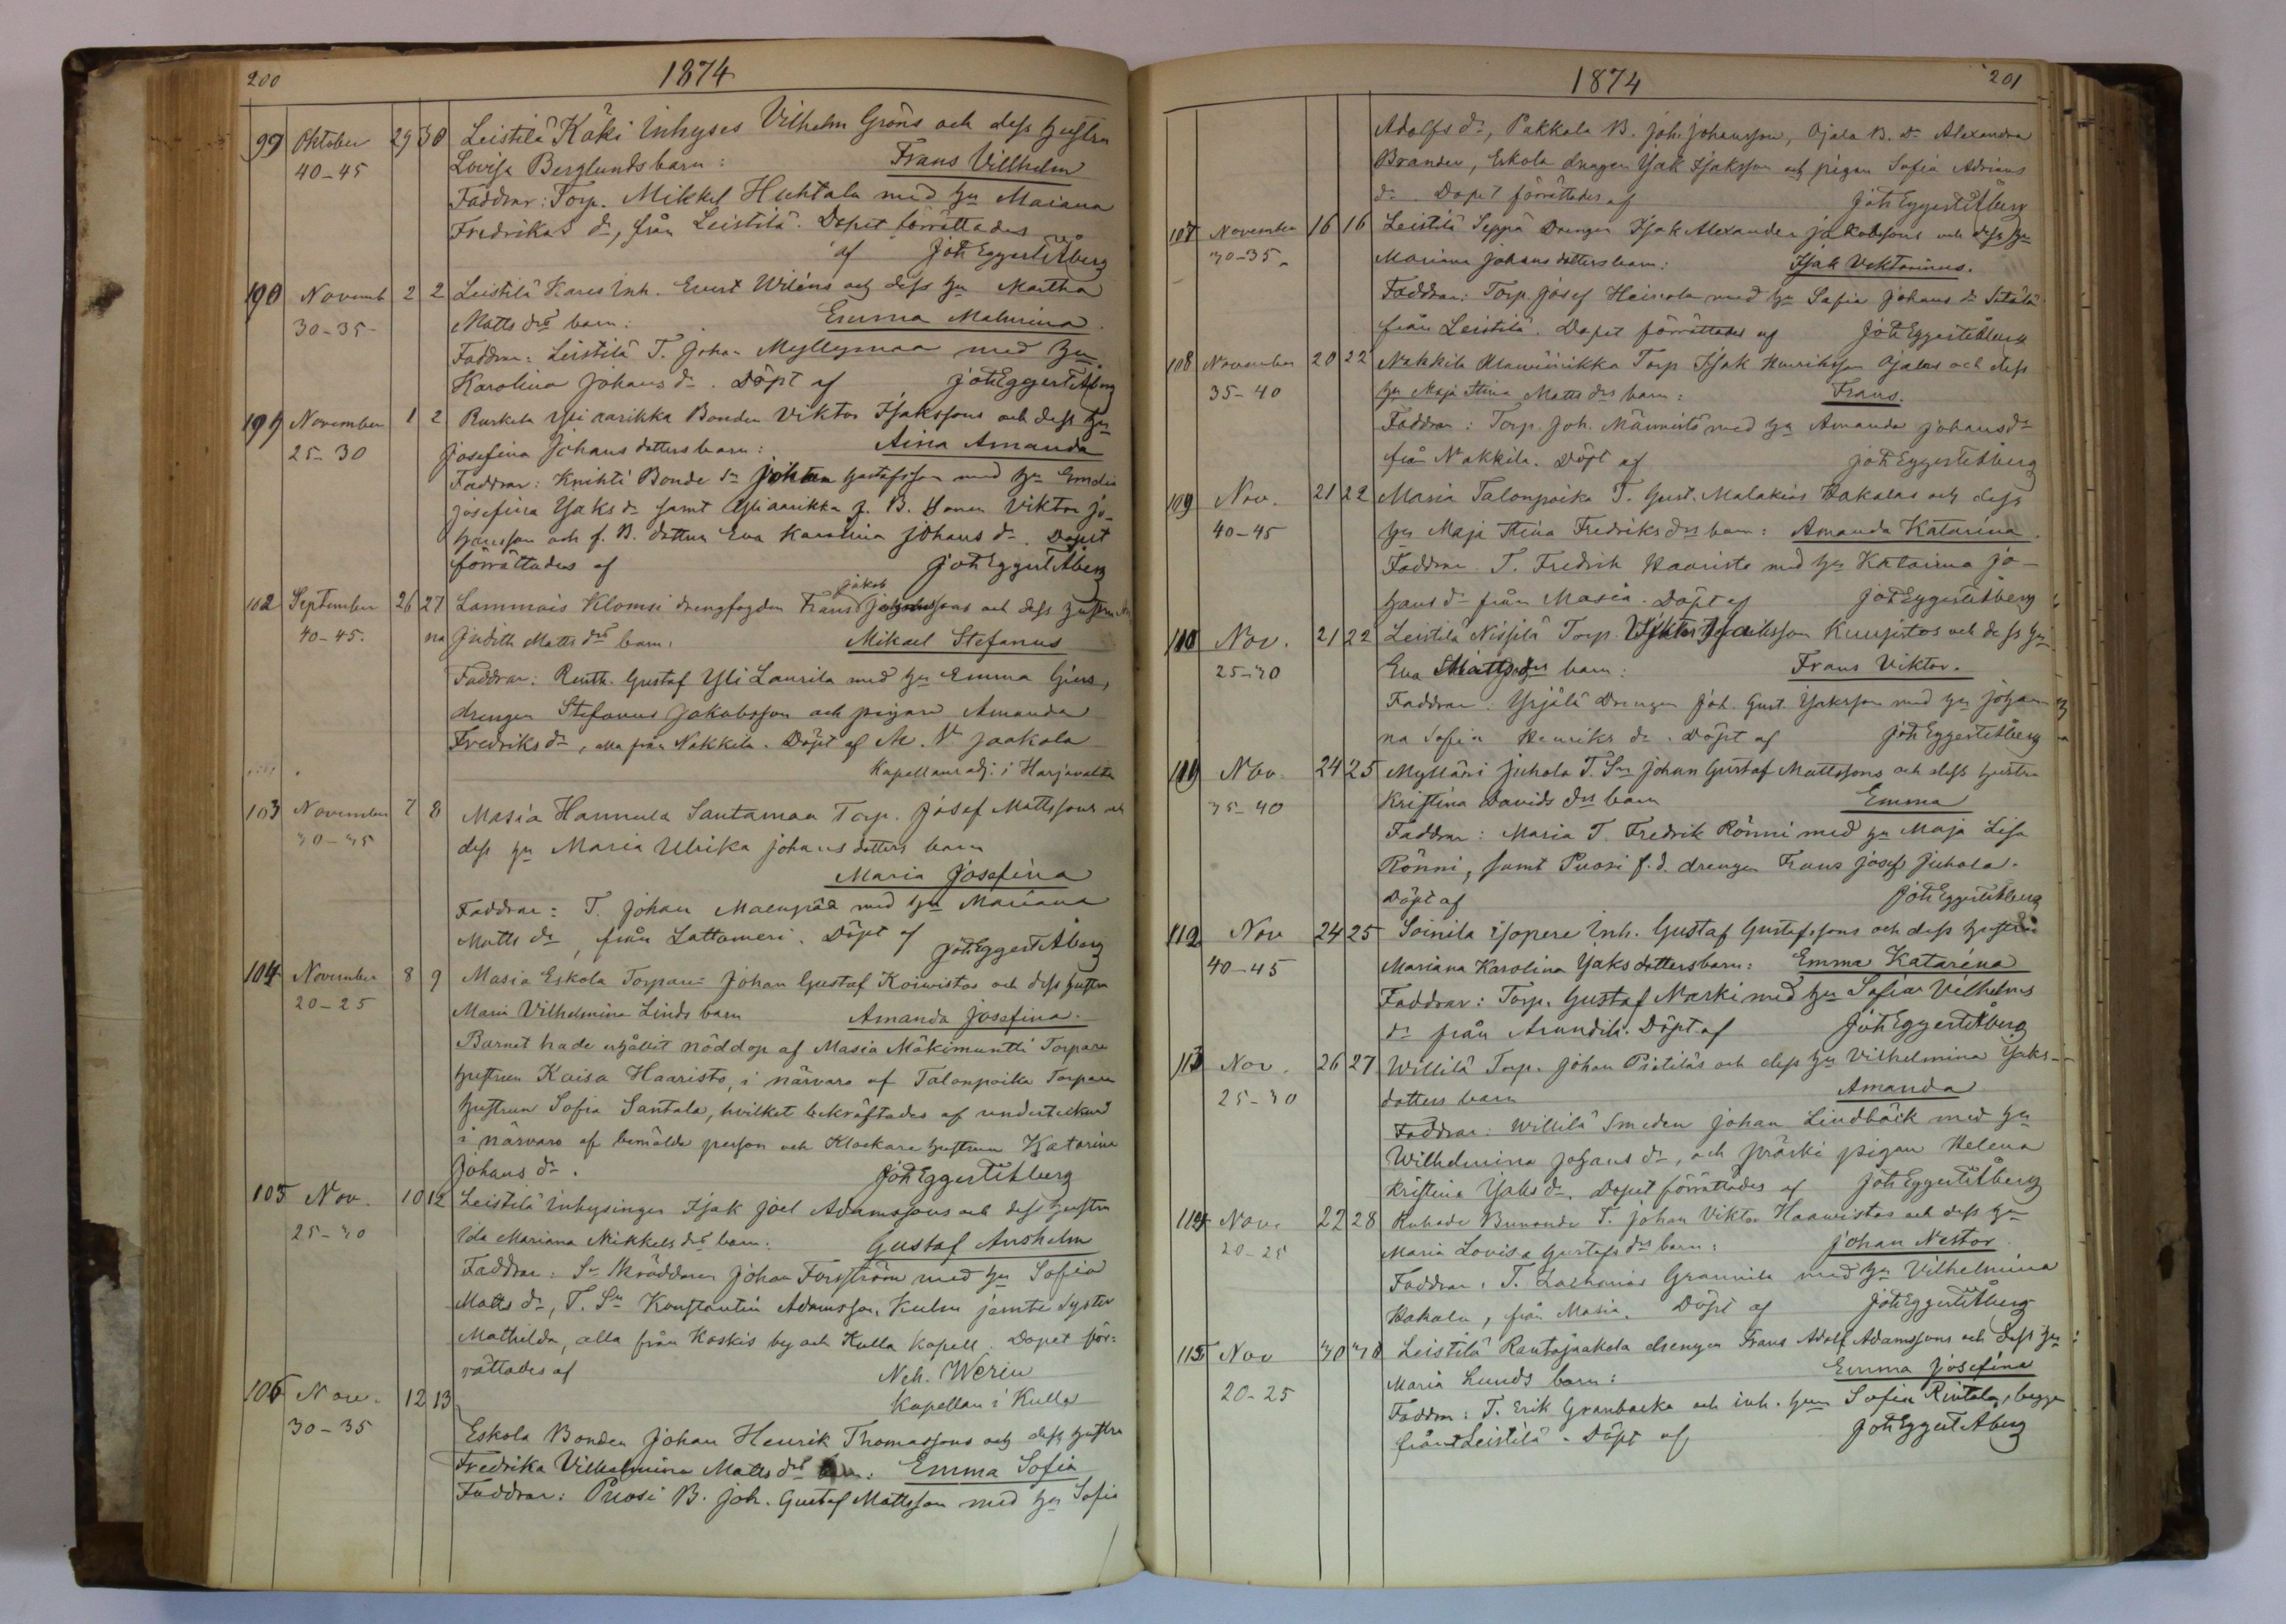 200
1874
99 Oktober 29 30 Leistilä Käki Inhyses Vilhelm Gröns och dess hustru
40-45 Lovisa Berglunds barn: Frans Villhelm
Faddrar: Torp. Mikkel Huhtala med hu Maiana
Fredrikas dr, från Leistilä. Dopet förrättades
af Joh Eggert Åberg
100 Novemb 2 2 Leistilä Kares Inh. Evert Wiléns och dess hu Martha
30-35- Matts drs barn: Emma Maturina.
Faddrar: Leistilä T. Johan Myllymaa med hu
Karolina Johans dr. Döpt af Joh Eggert Åberg
101 November 1 2 Ruskela Yli aarikka Bonden Viktor Isakssons och dess hu
25-30 Josefina Johans dotters barn: Aina Amanda
Faddrar: Knihti Bonde Sn Johan Gustafsson med hu Emelia
Josefina Isaks dr samt Yliaarikka f. B. Sonen Viktor Jo-
hansson och f. B. dottren Eva Karolina Johans dr. Dopet
förrättades af Joh Eggert Åberg
Jakob
102 September 26 27 Lammais Klomsi drengfogden Frans Johanssons och dess hustru
40-45. na Judith Matts drs barn: Mikael Stefanus
Faddrar: Rusth. Gustaf Yli Laurila med hu Emma Giers,
drengen Stefanus Jakobsson och pigan Amanda
Fredriks dr, alla från Nakkila. Döpt af M. V. Jaakola
Kapellans adj. i Harjavalta
103 November 7 8 Masia Hannula Santamaa Torp. Josef Mattssons och
30-35 dess hu Maria Ulrika Johans dotters barn
Maria Josefina
Faddrar: T. Johan Maenpää med hu Mariana
Matts dr, från Lattomeri. Döpt af Joh Eggert Åberg
104 November 8 9 Masia Eskola Torparn Johan Gustaf Koivistos och dess hustru
20-25 Maria Vilhelmina Linds barn Amanda Josefina.
Barnet hade erhållit nöddop af Masia Mäkimuntti Torpare
hustrun Kaisa Haaristo, i närvaro af Talonpoika Torpare
hustrun Sofia Santala, hvilket bekräftades af undertecknad
i närvaro af bemälde person och Klockare hustrun Katarina
Johans dr. Joh Eggert Åberg
105 Nov. 10 12 Leistilä inhysingen Isak Joel Adamssons och dess hustru
25-30 Ida Mariana Mikkels drs barn: Gustaf Anshelm
Faddrar: Sn Skräddaren Johan Forsström med hu Sofia
Matts dr, T. Sn Konstantin Adamsson Kulm jämte Syster
Mathilda, alla från Koskis by och Kulla Kapell. Dopet för-
rättades af Neh. Weriu
Kapellan i Kulla
106 Nov. 12 13
30-35 Eskola Bonden Johan Henrik Thomassons och dess hustru
Fredrika Vilhelmina Matts drs barn: Emma Sofia
Faddrar: Puosi B. Joh. Gustaf Mattsson med hu Sofia
1874
201
Adolfs dr, Pakkala B. Joh. Johansson, Ojala B. dr Alexandra
Brander, Eskola drengen Isak Isaksson och pigan Sofia Adrians
dr. Dopet förrättades af Joh Eggert Åberg
107 November 16 16 Leistilä Seppä Drengen Isak Alexander Jakobssons och dess hu
30-35- Mariana Johans dotters barn: Isak Viktorinus.
Faddrar: Torp. Josef Heinola med hu Sofia Johans dr
från Leistilä. Dopet förrättades af Joh Eggert Åberg
108 November 20 22 Nakkila Torp Isak Henriksson Ojalas och dess
35-40 hu Maja Stina Matts drs barn: Frans.
Faddrar: Torp. Joh. Männistö med hu Amanda Johans dr
från Nakkila. Döpt af Joh Eggert Åberg
109 Nov. 21 22 Masia Talonpoika T. Gust. Malakias Hakalas och dess
40-45 hu Maja Stina Fredriks drs barn: Amanda Katarina.
Faddrar. T. Fredrik Haaristo med hu Katarina Jo-
hans dr från Masia. Döpt af Joh Eggert Åberg
110 Nov. 21 22 Leistilä Nissilä Torp. Viktor Isaksson Kuusistos och dess hu
25-30 Eva Matts drs barn: Frans Viktor.
Faddrar: Yrjälä Drengen Joh. Gust. Isaksson med hu Johan-
na Sofia Henriks dr. Döpt af Joh Eggert Åberg
111 Nov. 24 25 Mylläri Juhola T. Sn Johan Gustaf Mattssons och dess hustru
35-40 Kristina Davids drs barn Emma
Faddrar: Masia T. Fredrik Rönni med hu Maja Lisa
Rönni, samt Puosi f. d. drengen Frans Josef Juhola.
Döpt af Joh Eggert Åberg
112 Nov 24 25 Soinila Isopere Inh. Gustaf Gustafssons och dess hustru
40-45 Mariana Karolina Isaks dotters barn: Emma Katarina
Faddrar: Torp. Gustaf Marki med hu Sofia Vilhelms
dr från Arandila. Döpt af Joh Eggert Åberg
113 Nov. 26 27 Willilä Torp. Johan Pietiläs och dess hu Vilhelmina Isaks-
25-30 dotters barn Amanda
Faddrar: Willilä Smeden Johan Lindbäck med hu
Wilhelmina Johans dr, och Präski pigan Helena
Kristina Isaks dr. Dopet förrättades af Joh Eggert Åberg
114 Nov. 22 28 T. Johan Viktor Haavistos och dess hu
20-25 Maria Lovisa Gustafs drs barn: Johan Nestor
Faddrar. T. Zacharias Grannila med hu Vilhelmina
Hakala, från Masia. Döpt af Joh Eggert Åberg
115 Nov 30 30 Leistilä Rantajaakola drengen Frans Adolf Adamssons och dess hu
20-25 Maria Lunds barn: Emma Josefina
Faddrar: T. Erik Granbacka och inh. hun Sofia Rintala, begge
från Leistilä. Döpt af Joh Eggert Åberg